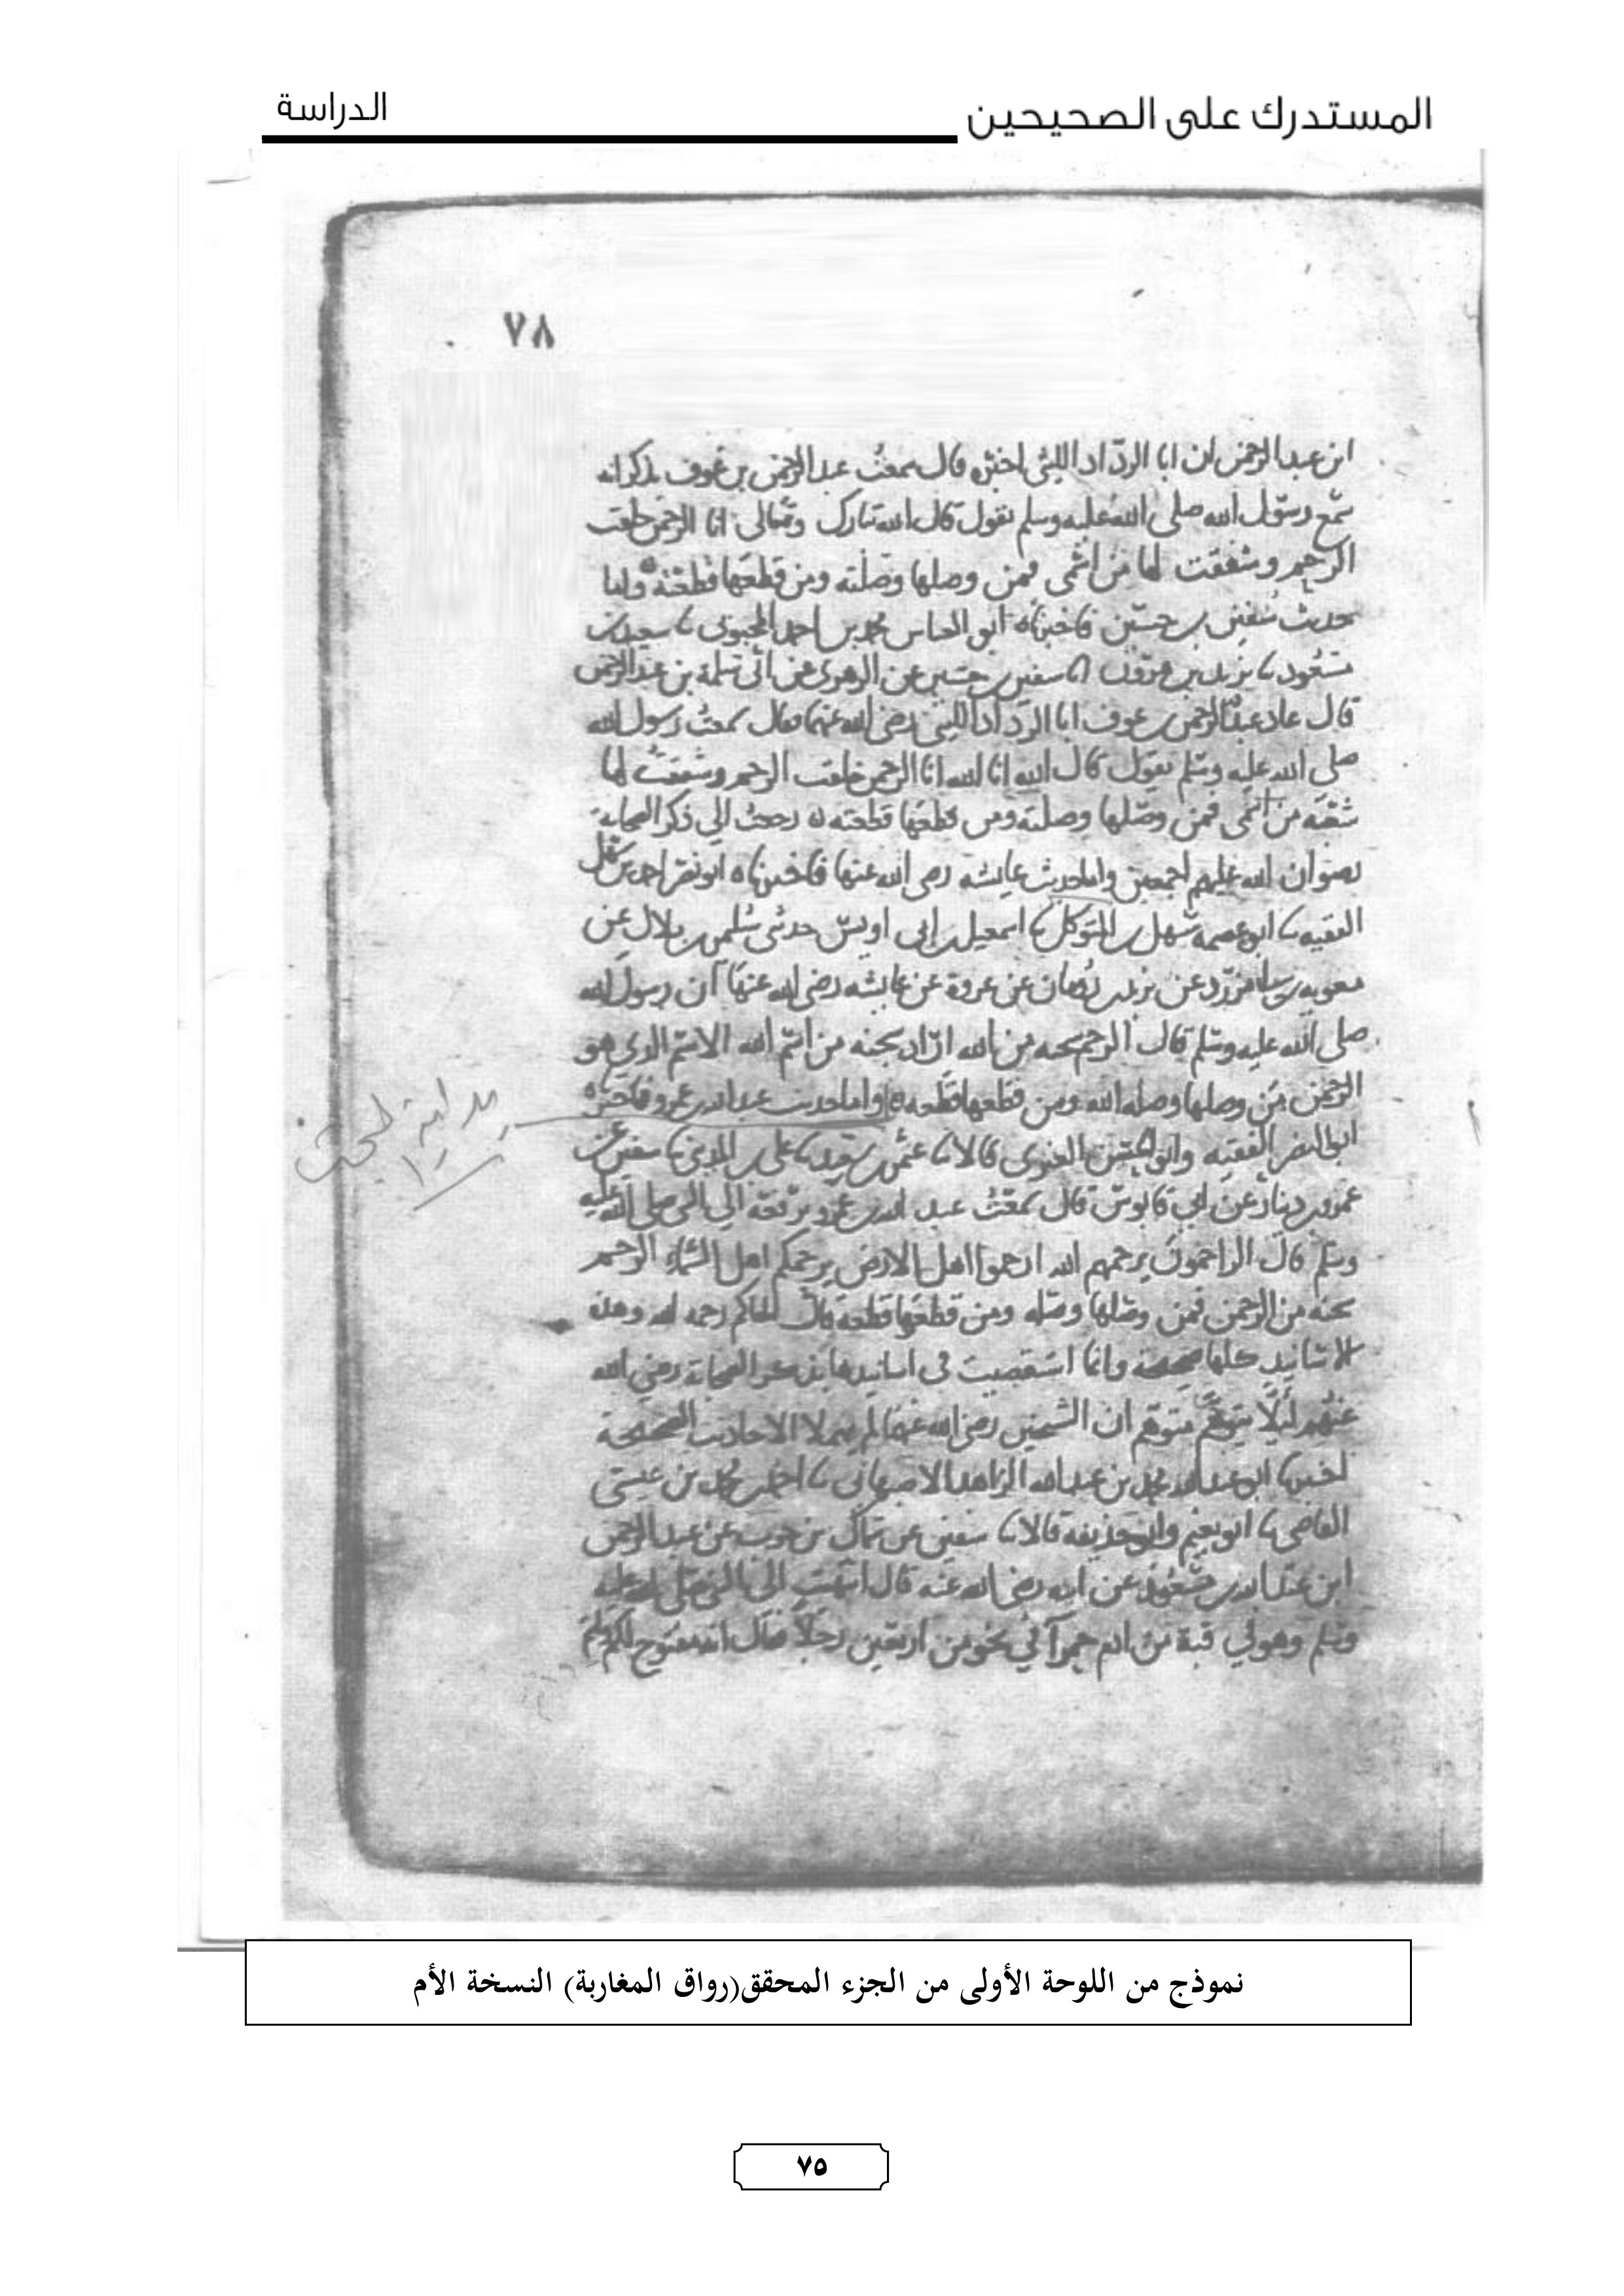 المستدرك على الصحيحين
الدراسة
٧٨
ابن عبد الرحمن ان ابا الرداد الليثى اخبره قال سمعت عبد الرحمن بن عوف يذكر انه
سمع رسول الله صلى الله عليه وسلم يقول قال الله تبارك وتعالى انا الرحمن خلقت
الرحم وشققت لها من اسمى فمن وصلها وصلته ومن قطعها قطعته واما
حديث سفين بن حسين فاخبرناه ابو العباس محمد بن احمد المحبوبى ثنا سعيد بن
مسعود ثنا يزيد بن هرون انا سفين بن حسين عن الزهرى عن ابى سلمة بن عبد الرحمن
قال عاد عبد الرحمن بن عوف ابا الرداد الليثى رضى الله عنهما فقال سمعت رسول الله
صلى الله عليه وسلم يقول قال الله انا الله انا الرحمن خلقت الرحم وشققت لها
شقة من اسمى فمن وصلها وصلته ومن قطعها قطعته ه رجعت الى ذكر الصحابة
رضوان الله عليهم اجمعين واما حديث عايشة رضى الله عنها فاخبرناه ابو نصر احمد بن سهل
الفقيه ثنا ابو عصمة سهل بن المتوكل ثنا اسمعيل بن ابى اويس حدثنى سليمن بن بلال عن
معوية بن ابى مزرد عن يزيد بن رومان عن عروة عن عايشه رضى الله عنها ان رسول الله
صلى الله عليه وسلم قال الرحم شجنه من الله
الرحمن من وصلها وصله الله ومن قطعها قطعه واما حديث عبد الله بن عمرو فاخبرناه
ابو النضر الفقيه وابو الحسن العنزى قالا ثنا عثمن بن سعيد ثنا على بن المدينى ثنا سفين عن
عمرو بن دينار عن ابى قابوس قال سمعت عبد الله بن عمرو يرفعه الى النبى صلى الله عليه
وسلم قال الراحمون يرحمهم الله ارحموا اهل الارض يرحمكم اهل السماء الرحم
شجنه من الرحمن فمن وصلها وصله ومن قطعها قطعه قال الحاكم رحمه الله وهذه
الاسانيد كلها صحيحة وانما استقصيت فى اسانيدها بذكر الصحابة رضى الله
عنهم ليلا يتوهم متوهم ان الشيخين رضى الله عنهما لم يهملا الاحاديث الصحيحة
اخبرنا ابو عبد الله محمد بن عبد الله الزاهد الاصبهانى ثنا احمد بن محمد بن عيسى
القاضى ثنا ابو نعيم وابو حذيفة قالا ثنا سفين عن سماك بن حرب عن عبد الرحمن
ابن عبد الله بن مسعود عن ابيه رضى الله عنه قال انتهيت الى النبى صلى الله عليه
وسلم وهو فى قبة من ادم حمرآ فى نحو من اربعين رجلا فقال انه مفتوح لكم
بداية البحث
نموذج من اللوحة الأولى من الجزء المحقق(رواق المغاربة) النسخة الأم
٧٥